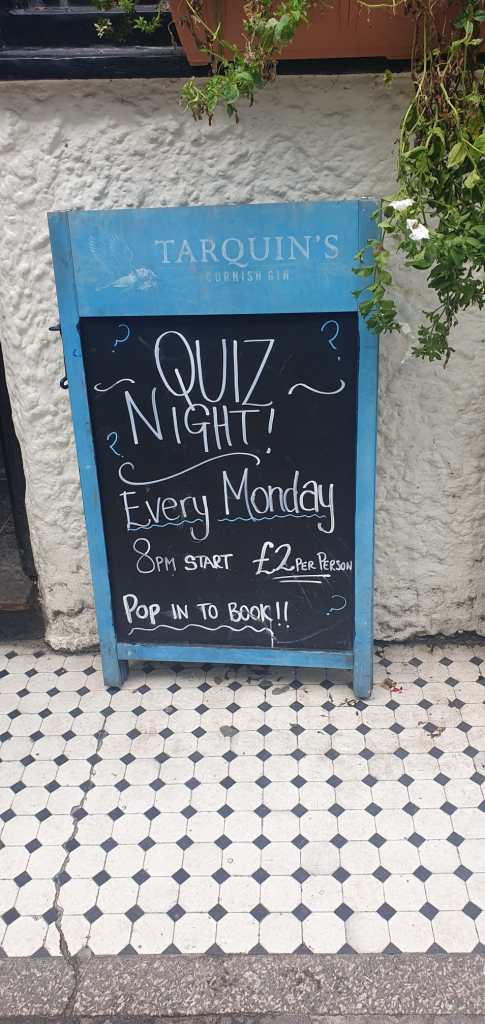 TARQUIN'S
CORNISH GIN
? ?
QUIZ
NIGHT!
?
Every Monday
8PM START £2 PER PERSON
POP IN TO BOOK!!
?